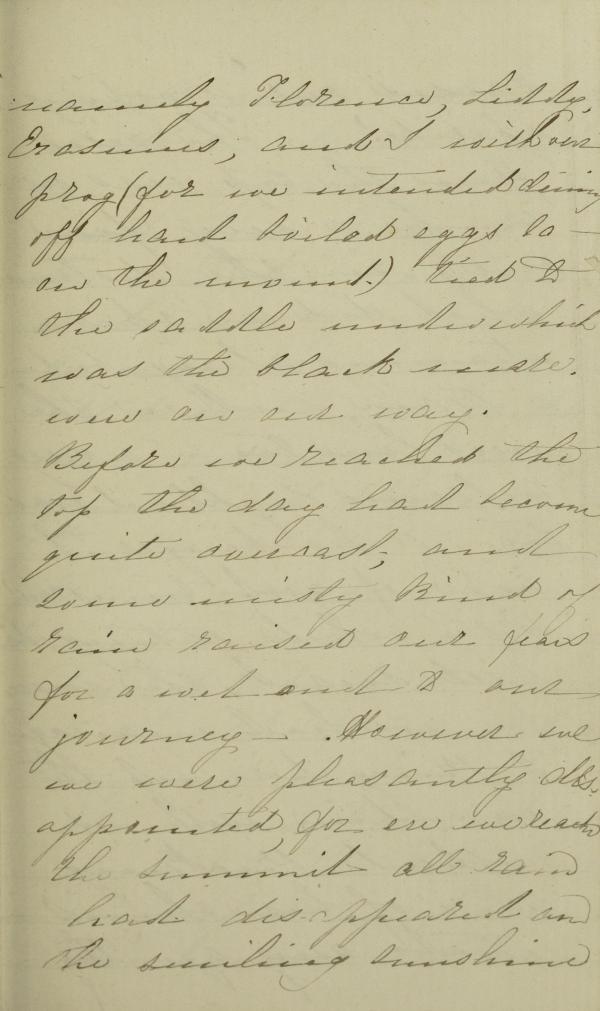 namely Florence, Liddy,
Erasmus, and I with our
prog (for we intended dining
off hard boiled eggs &c —
on the mound.) tied to
the saddle under which
was the black mare.
were on our way.
Before we reached the
top the day had become
quite overcast, and
some misty kind of
rain raised our fears
for a wet end to our
journey — However we
we were pleasantly dis-
appointed, for ere we reach
the summit all rain
had disappeared and
the smiling sunshine